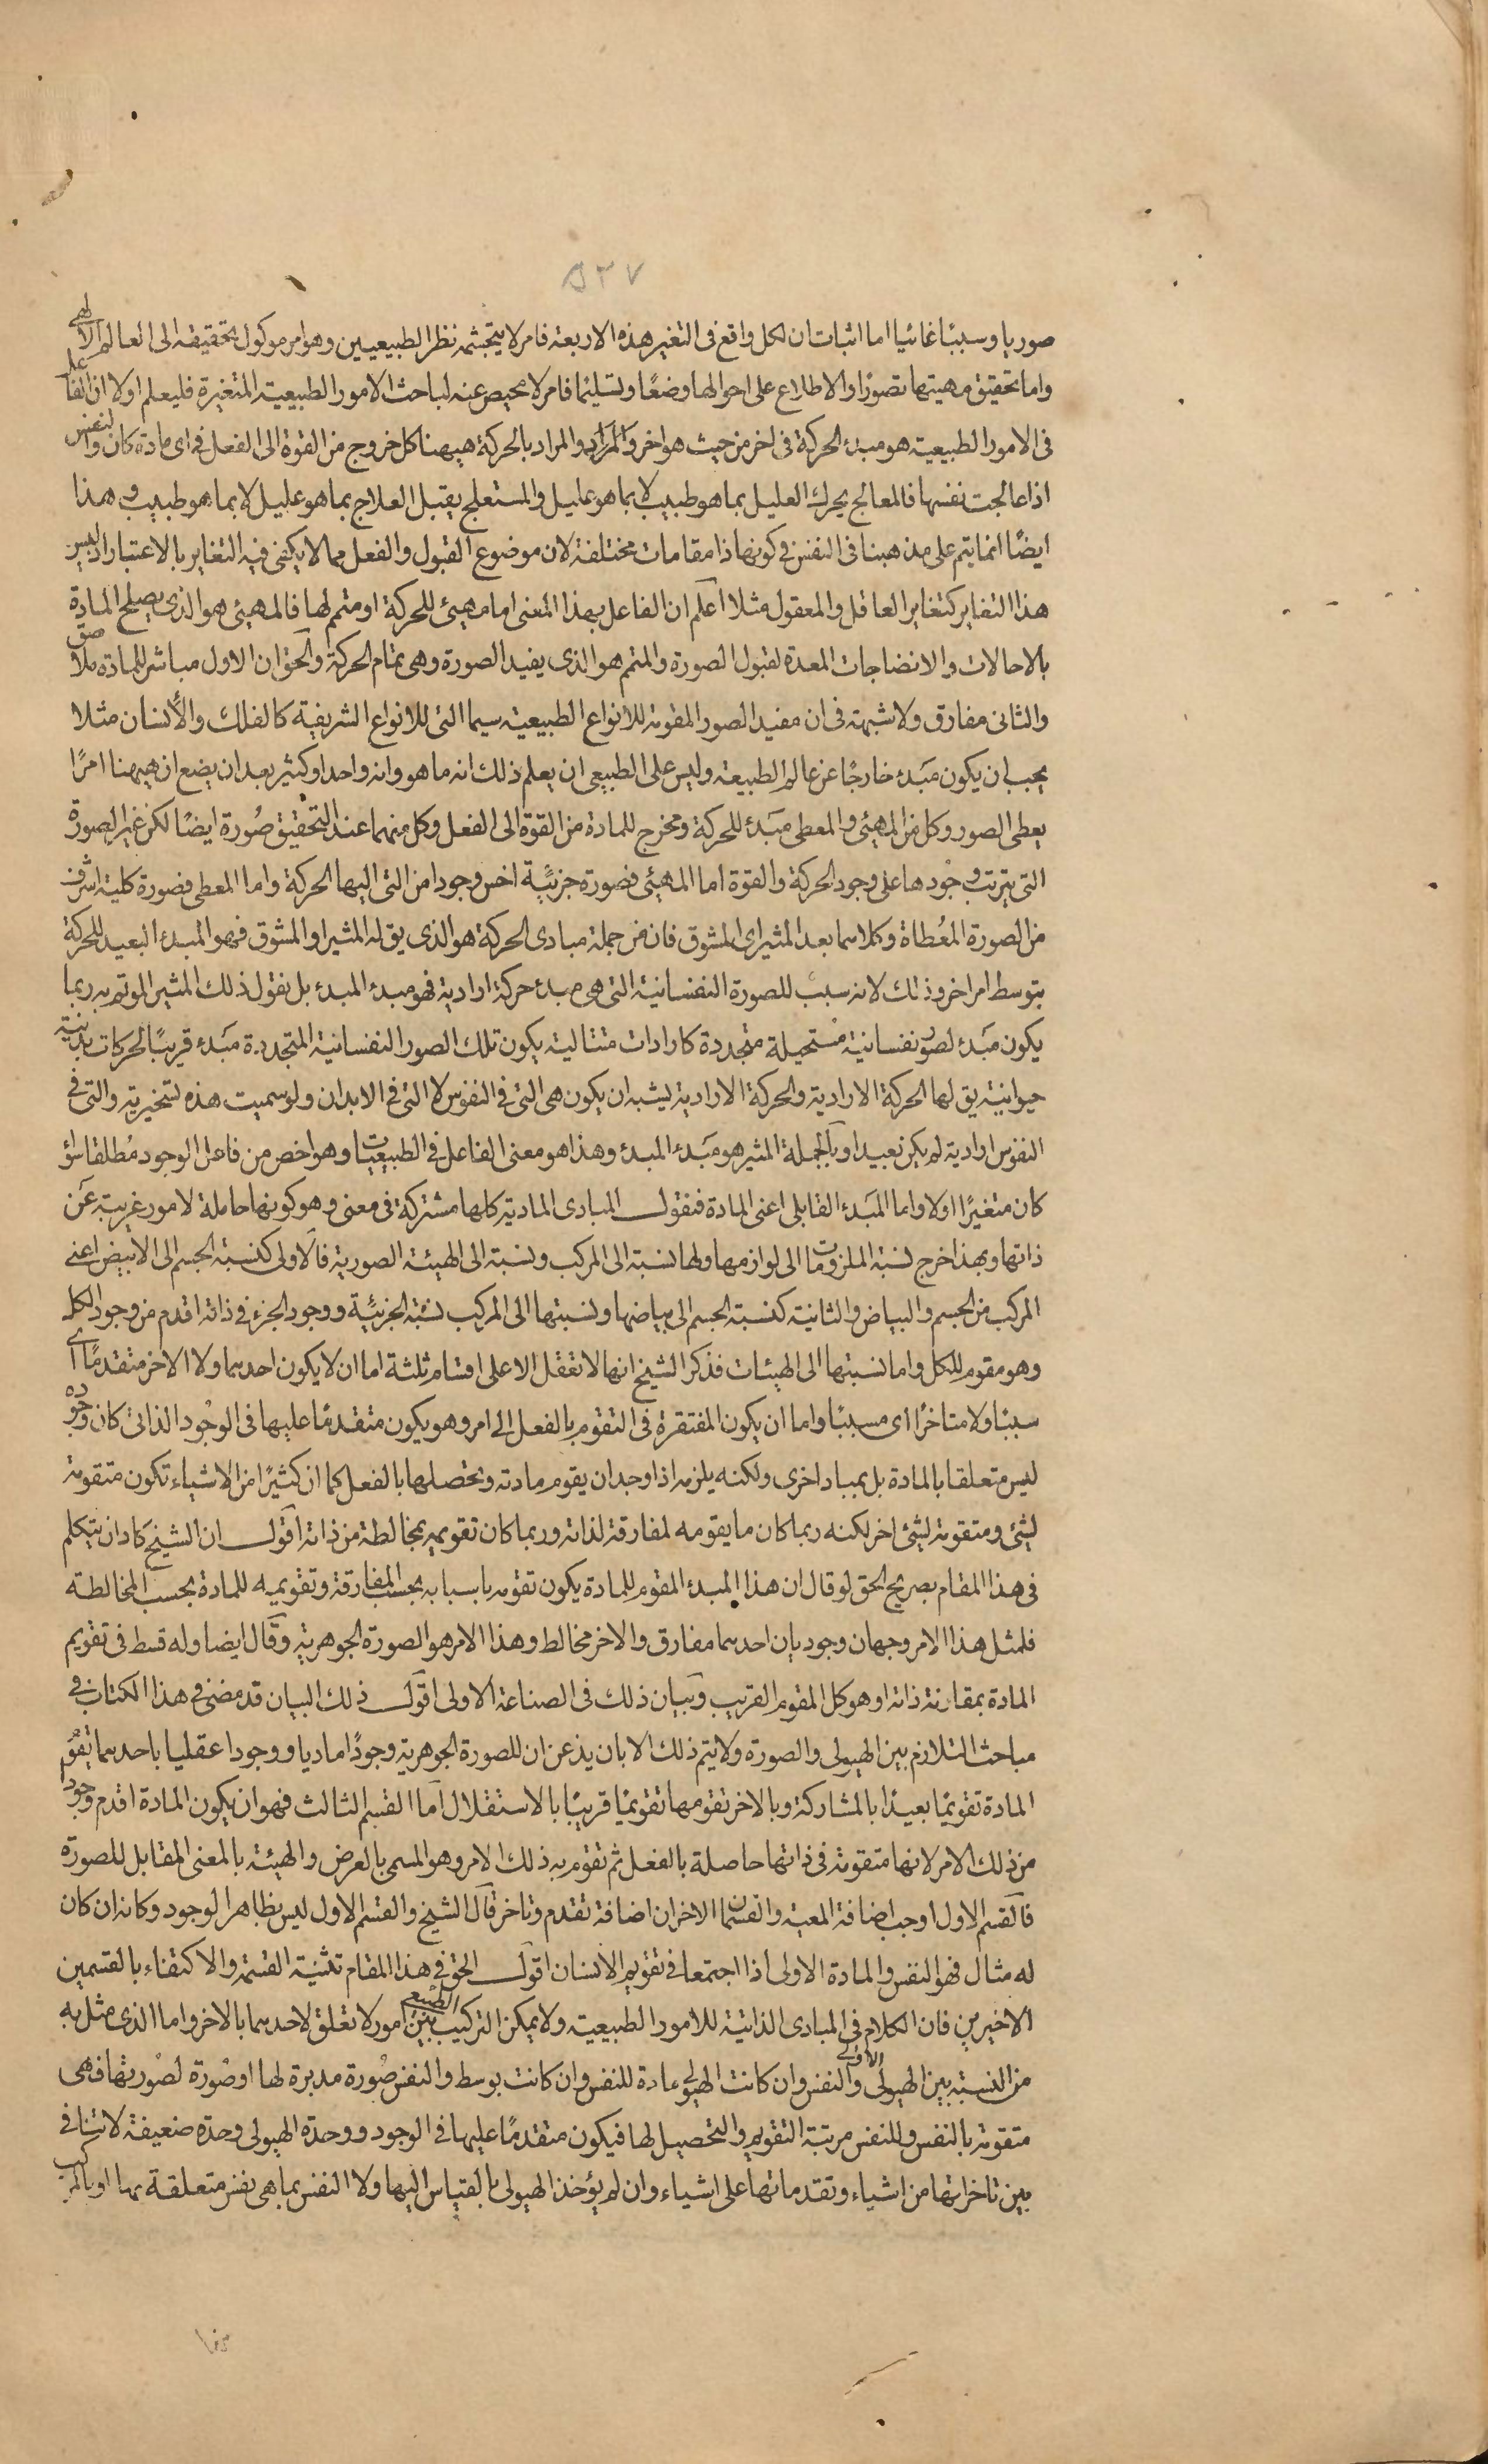 ٥٣٧
صوريا وسببًا غائيا اما اثبات ان لكل واقع فى التغير هذه الاربعة فامر لا يتجشمه نظر الطبيعيين وهو امر موكول تحقيقه الى العالم الالهى
واما تحقيق مهيتها تصورًا والاطلاع على احوالها وضعًا وتسليمًا فامر لا محيص عنه لباحث الامور الطبيعية المتغيرة فليعلم اولا ان الفاعل
فى الامور الطبيعية هو مبدء الحركة فى اخر من حيث هو اخر والمراد والمراد بالحركة هيهنا كل خروج من القوة الى الفعل فى اى مادة كان والنفس
اذا عالجت نفسها فالمعالج يحرك العليل بما هو طبيب لا بما هو عليل والمستعلج يقبل العلاج بما هو عليل لا بما هو طبيب و هذا
ايضًا انما يتم على مذهبنا فى النفس فى كونها ذا مقامات مختلفة لان موضوع القبول والفعل مما لا يكفى فيه التغاير بالاعتبار اذ ليس
هذا التغاير كتغاير العاقل والمعقول مثلا اعلم ان الفاعل بهذا المعنى اما مهيئ للحركة او متمم لها فالمهيئ هو الذى يصلح المادة
بالاحالات والانضاجات المعدة لقبول الصورة والمتمم هو الذى يفيد الصورة وهى تمام الحركة والحق ان الاول مباشر للمادة ملاصق
والثانى مفارق ولا شبهة فى ان مفيد الصور المقومة للانواع الطبيعية سيما التى للانواع الشريفة كالفلك والأنسان مثلا
يجب ان يكون مبَدء خارجًا عن عالم الطبيعة وليس على الطبيعى ان يعلم ذلك انه ما هو وانه واحد او كثير بعد ان يضع ان هيهنا امرًا
يعطى الصور وكل من المهيئ والمعطى مبَدء للحركة ومخرج للمادة من القوة الى الفعل وكل منهما عند التحقيق صُورة ايضًا لكن غير الصورة
التى يترتب وجودها على وجود الحركة والقوة اما المهيئ فصورة جزئية اخس وجودا من التى اليها الحركة واما المعطى فصورة كلية اشرف
من الصورة المعُطاة وكلاهما بعد المثير اى المشوق فان من جملة مبادى الحركة هو الذى يق له المثير او المشوق فهو المبدء البعيد للحركة
بتوسط امر اخر وذلك لانه سببٌ للصورة النفسانية التى هى مبدء حركة ارادية فهو مبدء المبدء بل نقول ذلك المثير الموتم به ربما
يكون مبَدء لصور نفسانية مُستحيلة متجددة كارادات متتالية يكون تلك الصور النفسانية المتجددة مبَدء قريبًا لحركات بدنية
حيوانية يق لها الحركة الارادية والحركة الارادية يشبه ان يكون هى التى فى النفوس لا التى فى الابدان ولو سميت هذه تسخيرية والتى فى
النفوس ارادية لم يكن بعيدا وبالجملة المثير هو مبَدء المبدء وهذا هو معنى الفاعل فى الطبيعيات وهو اخص من فاعل الوجود مُطلقا سواء
كان متغيرًا اولا واما المبَدء القابلى اعنى المادة فنقول المبادى المادية كلها مشتركة فى معنى وهو كونها حاملة لامور غريبة عَن
ذاتها وبهذا خرج نسبة الملزومات الى لوازمها ولها نسبة الى المركب ونسبة الى الهيئة الصورية فالاولى كنسبة الجسم الى الابيض اعنى
المركب من الجسم والبياض والثانية كنسبة الجسم الى بياضها ونسبتها الى المركب نسبة الجزئية ووجود الجزء فى ذاته اقدم من وجود الكل
وهو مقوم للكل واما نسبتها الى الهيئات فذكر الشيخ انها لا تعقل الا على اقسام ثلثة اما ان لا يكون احدهما ولا الاخر متقدمًا اى
سببًا ولا متاخرًا اى مسببًا واما ان يكون المفتقرة فى التقوم بالفعل الى امر وهو يكون متقدمًا عليها فى الوجُود الذاتى كان وجوده
ليس متعلقا بالمادة بل بمباد اخرى ولكنه يلزمه اذا وجد ان يقوم مادته وتحصلها بالفعل كما ان كثيرًا من الاشياء تكون متقومة
لشئ ومتقومة لشئ اخر لكنه ربما كان ما يقومه لمفارقة لذاته وربما كان تقويمه بمخالطة من ذاته اقول ان الشيخ كاد ان يتكلم
فى هذا المقام بصريح الحق لو قال ان هذا المبدء المقوم للمادة يكون تقومه باسبابه بحسب المفارقة وتقويمه للمادة بحسب المخالطة
فلمثل هذا الامر وجهان وجوديان احدهما مفارق والاخر مخالط وهذا الامر هو الصورة الجوهرية وقال ايضا وله قسط فى تقويم
المادة بمقارنة ذاته او هو كل المقوم القريب وبيان ذلك فى الصناعة الاولى اقول ذلك البيان قد مضى فى هذا الكتاب فى
مباحث التلازم بين الهيولى والصورة ولا يتم ذلك الا بان يذعن ان للصورة الجوهرية وجودًا ماديا ووجودا عقليا باحدهما تقوُم
المادة تقويمًا بعيدًا بالمشاركة وبالاخر تقومها تقويمًا قريبًا بالاستقلال اما القسم الثالث فهو ان يكون المادة اقدم وجودا
من ذلك الامر لانها متقومة فى ذاتها حاصلة بالفعل ثم تقوم به ذلك الامر وهو المسمى بالعرض والهيئة بالمعنى المقابل للصورة
فالقسم الاول اوجب اضافة المعية والقسمان الاخران اضافة تقدم وتاخر قال الشيخ والقسم الاول ليس بظاهر الوجود وكانه ان كان
له مثال فهو النفس والمادة الاولى اذا اجتمعا فى تقويم الانسان اقول الحق فى هذا المقام تثنية القسمة والاكتفاء بالقسمين
الاخيرين فان الكلام فى المبادى الذاتية للامور الطبيعية ولا يمكن التركيب الطبيعى بين امور لا تعلق لاحدهما بالاخر واما الذى مثل به
من النسبة بين الهيولى الاولى والنفس وان كانت الهيولى مادة للنفس وان كانت بوسط والنفس صُورة مدبرة لها او صُورة لصُورتها فهى
متقومة بالنفس وللنفس مرتبة التقويم والتحصيل لها فيكون متقدمًا عليها فى الوجود ووحدة الهيولى وحدة ضعيفة لا تنافى
بين تاخراتها من اشياء وتقدماتها على اشياء وان لم يؤخذ الهيولى بالقياس اليها ولا النفس بما هى نفس متعلقة بها او بالمركب